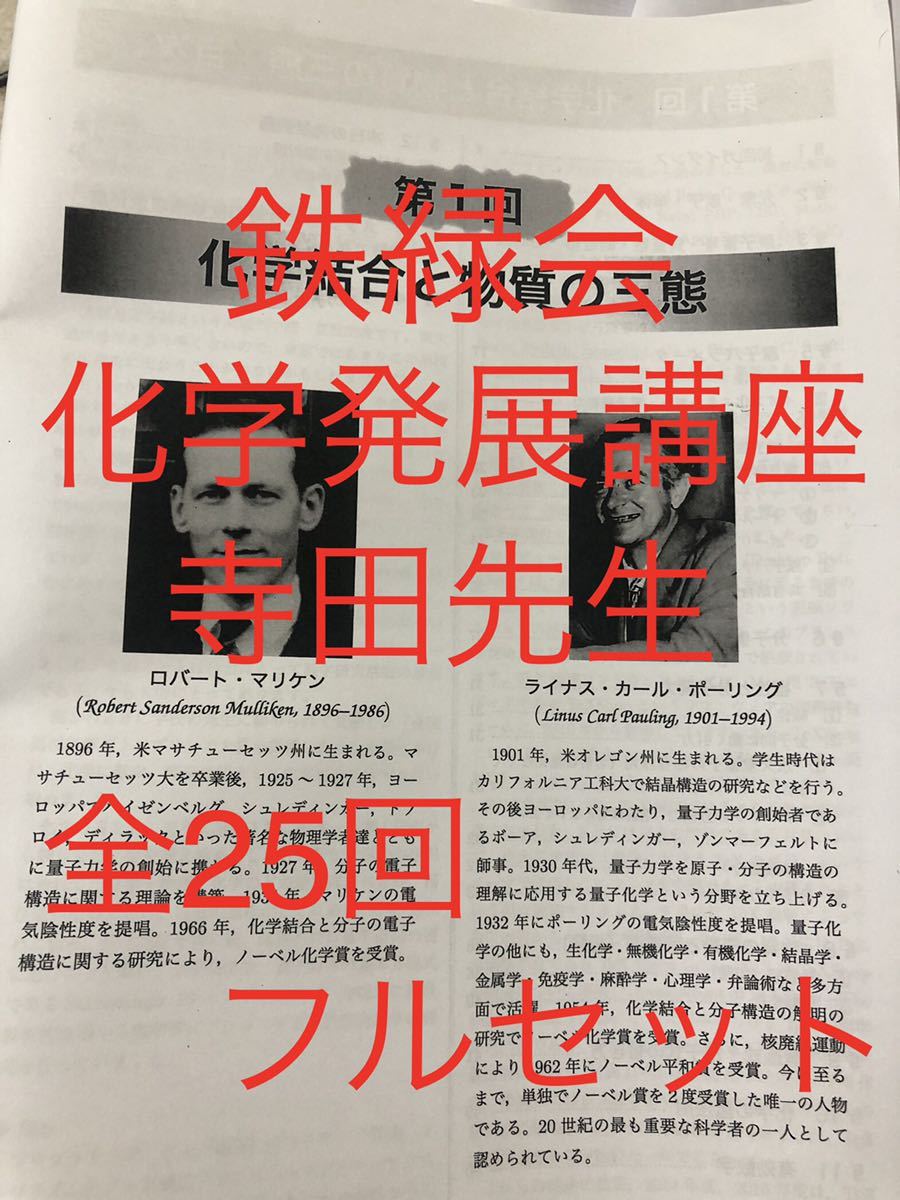 第1回
化学結合と物質の三態
鉄緑会
化学発展講座
寺田先生
全25回
フルセット
ロバート・マリケン
(Robert Sanderson Mulliken, 1896–1986)
1896年，米マサチューセッツ州に生まれる。マ
サチューセッツ大を卒業後，1925～1927年，ヨー
ロッパでハイゼンベルグ，シュレディンガー，ドブ
ロイ，ディラックといった著名な物理学者達ととも
に量子力学の創始に携わる。1927年，分子の電子
構造に関する理論を構築。193 年，マリケンの電
気陰性度を提唱。1966年，化学結合と分子の電子
構造に関する研究により，ノーベル化学賞を受賞。
ライナス・カール・ポーリング
(Linus Carl Pauling, 1901–1994)
1901年，米オレゴン州に生まれる。学生時代は
カリフォルニア工科大で結晶構造の研究などを行う。
その後ヨーロッパにわたり，量子力学の創始者であ
るボーア，シュレディンガー，ゾンマーフェルトに
師事。1930年代，量子力学を原子・分子の構造の
理解に応用する量子化学という分野を立ち上げる。
1932年にポーリングの電気陰性度を提唱。量子化
学の他にも，生化学・無機化学・有機化学・結晶学・
金属学・免疫学・麻酔学・心理学・弁論術など多方
面で活躍。1954年，化学結合と分子構造の解明の
研究でノーベル化学賞を受賞。さらに，核廃絶運動
により1962年にノーベル平和賞を受賞。今に至る
まで，単独でノーベル賞を2度受賞した唯一の人物
である。20世紀の最も重要な科学者の一人として
認められている。